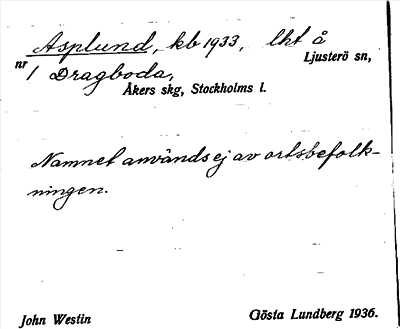 Asplund, kb 1933, lht å
Ljusterö sn,
nr 1 Dragboda,
Åkers skg, Stockholms l.
Namnet användsej av ortsbefolk-
ningen.
John Westin
Gösta Lundberg 1936.